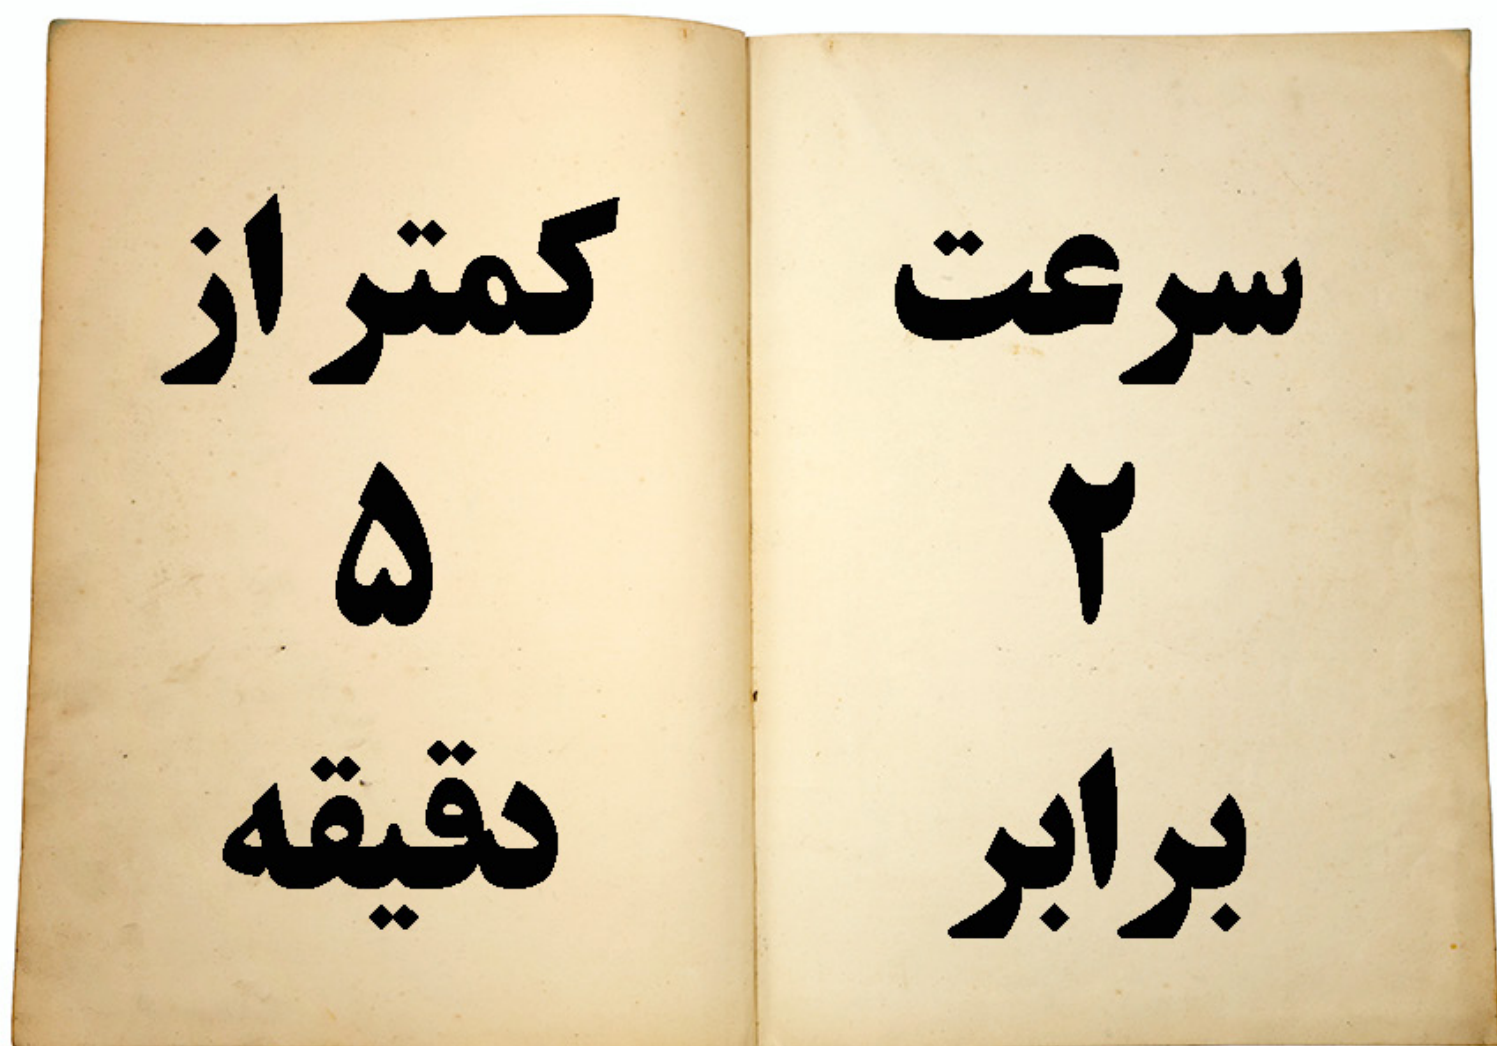 سرعت
۲
برابر
کمتر از
۵
دقیقه